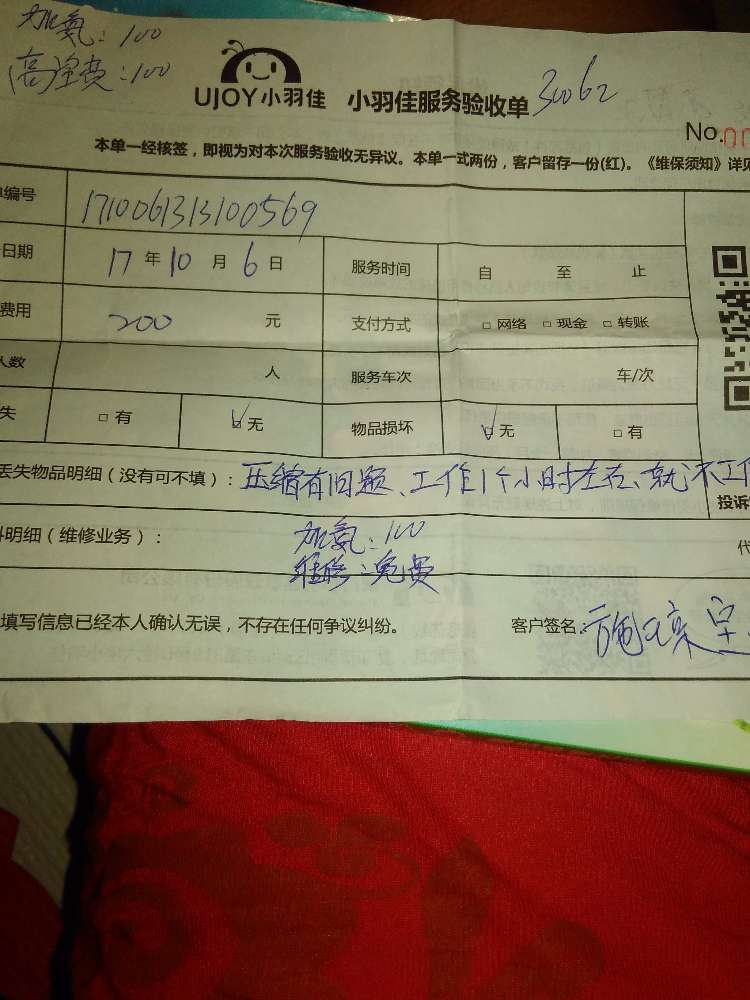 加氨：100
高空费：100
UJOY小羽佳 小羽佳服务验收单 30062
No.
本单一经核签，即视为对本次服务验收无异议。本单一式两份，客户留存一份(红)。《维保须知》详见
单编号 1710061313100569
日期 17 年 10 月 6 日 服务时间 自 至 止
费用 200 元 支付方式 □ 网络 □ 现金 □ 转账
人数 人 服务车次 车/次
失 □ 有 □ 无 物品损坏 □ 无 □ 有
丢失物品明细（没有可不填）：压缩有问题、工作1个小时左右、就不工作
投诉
料明细（维修业务）： 加氨：100 代
维修：免费
填写信息已经本人确认无误，不存在任何争议纠纷。 客户签名：